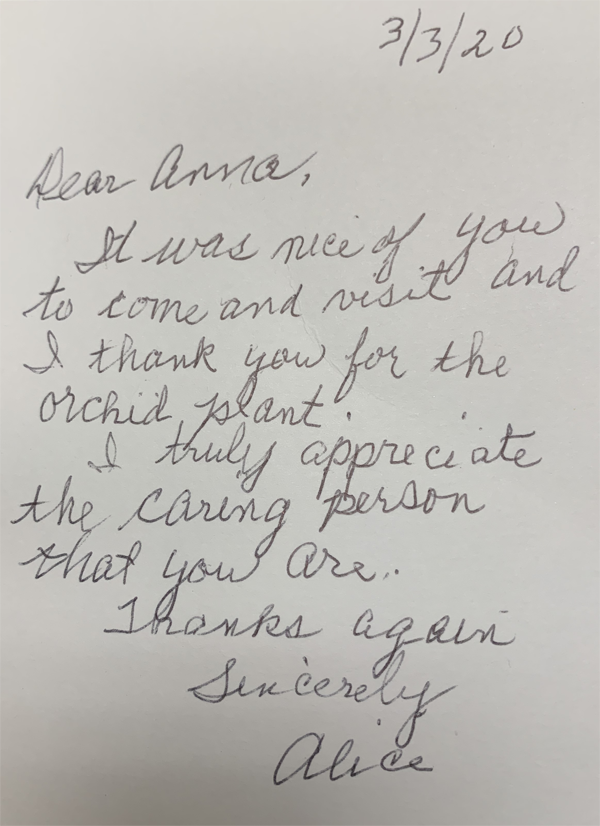 3/3/20
Dear Anna,
It was nice of you
to come and visit and
I thank you for the
orchid plant.
I truly appreciate
the caring person
that you are..
Thanks again
Sincerely
Alice